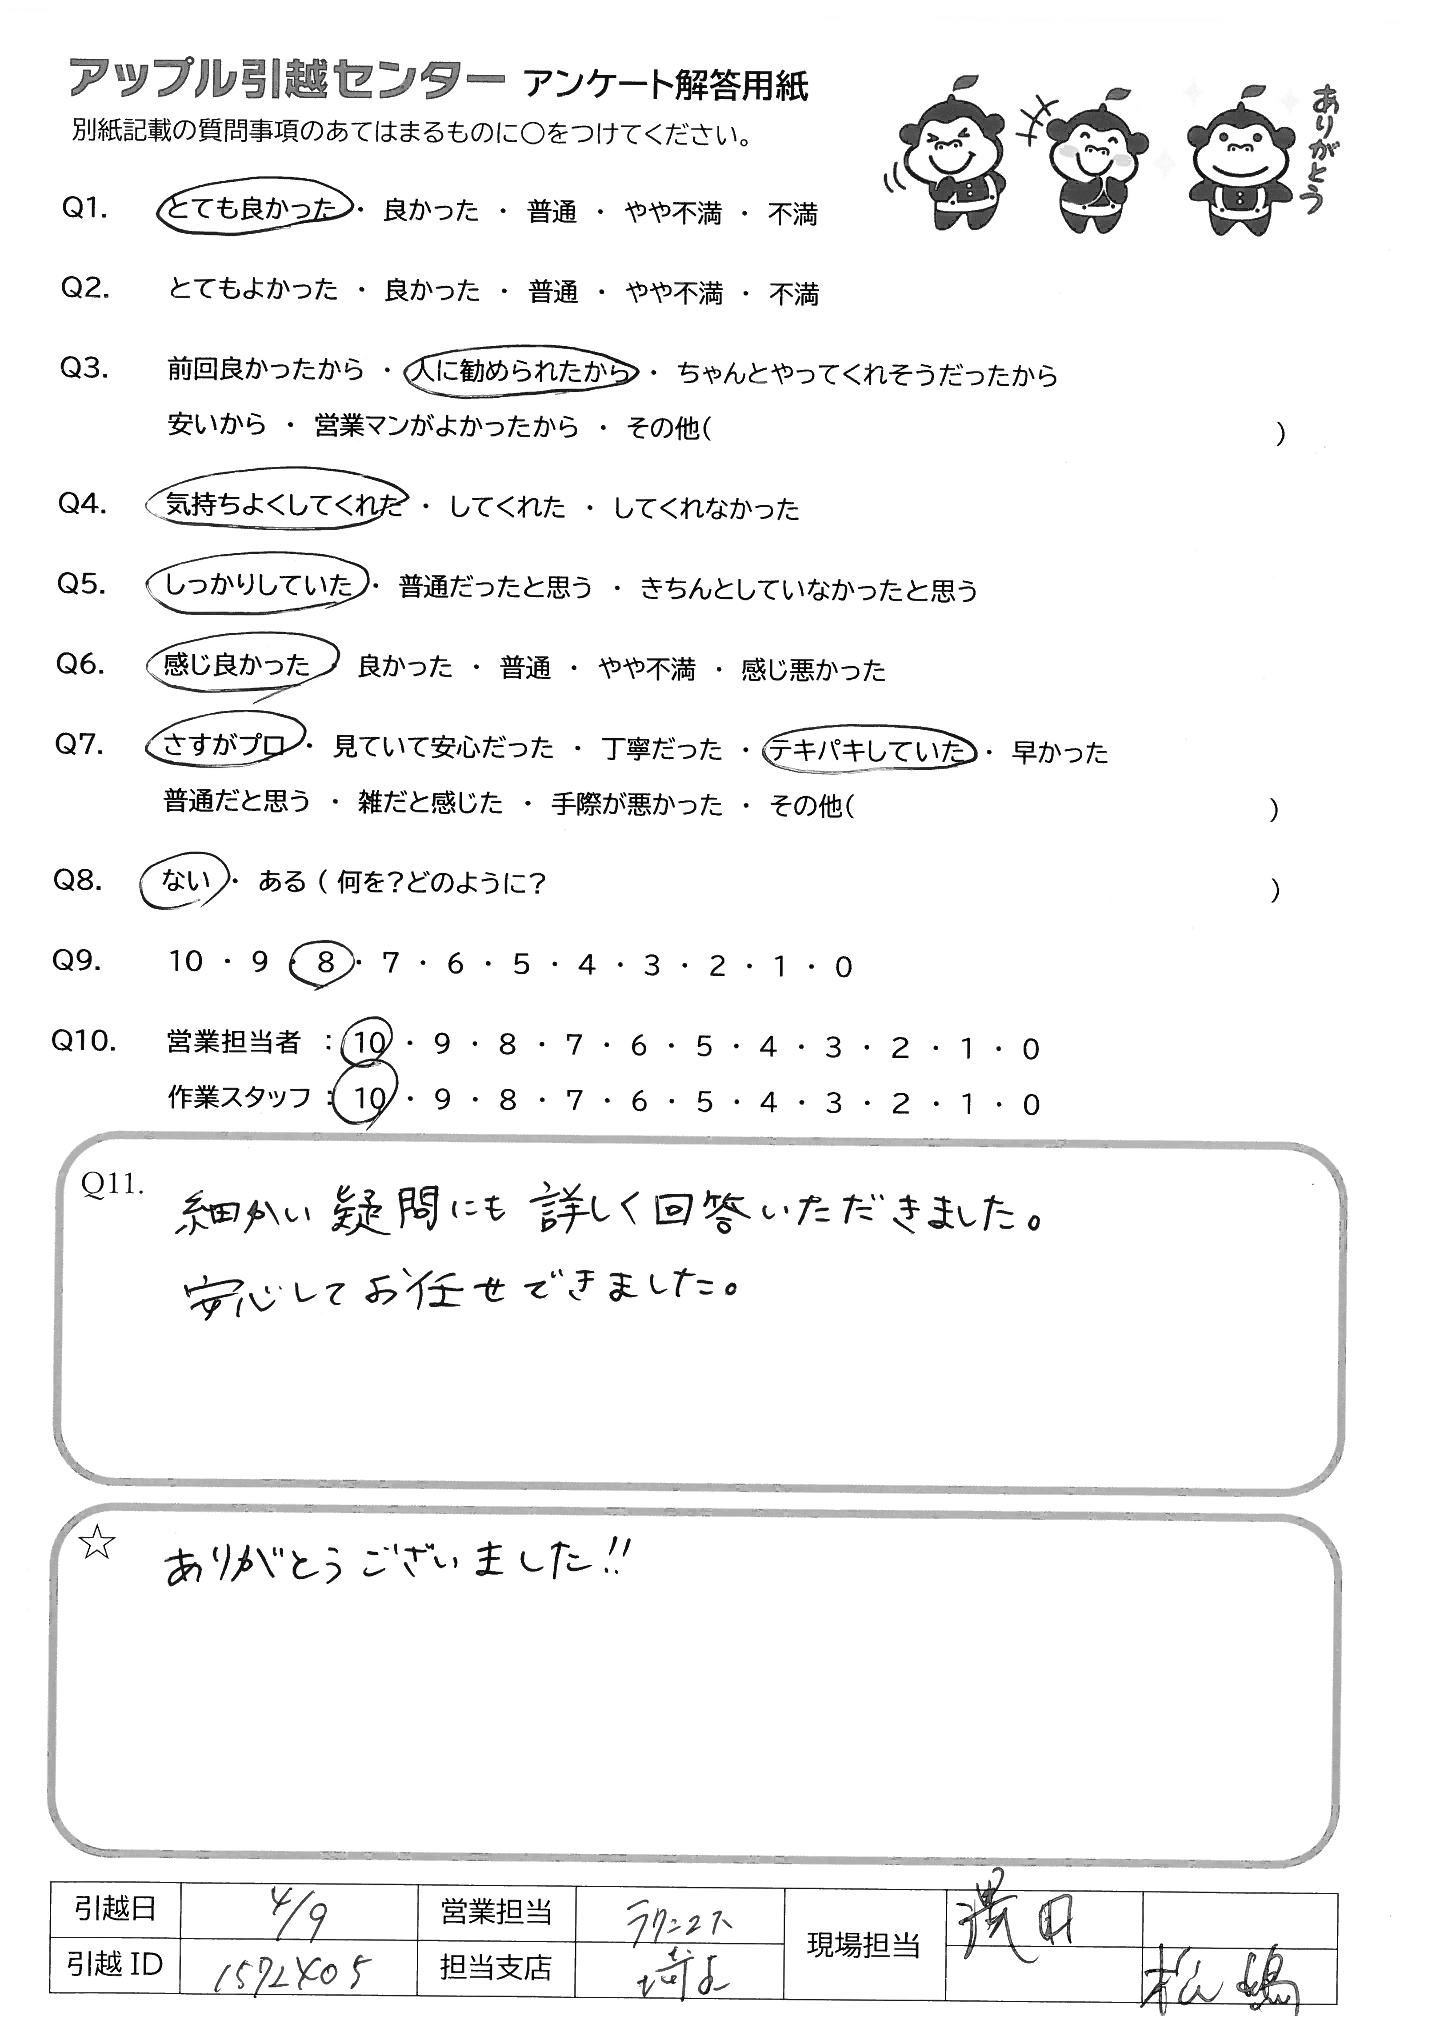 アップル引越センター アンケート解答用紙
ありがとう
別紙記載の質問事項のあてはまるものに○をつけてください。
Q1. とても良かった ・ 良かった ・ 普通 ・ やや不満 ・ 不満
Q2. とてもよかった ・ 良かった ・ 普通 ・ やや不満 ・ 不満
Q3. 前回良かったから ・ 人に勧められたから ・ ちゃんとやってくれそうだったから
安いから ・ 営業マンがよかったから ・ その他( )
Q4. 気持ちよくしてくれた ・ してくれた ・ してくれなかった
Q5. しっかりしていた ・ 普通だったと思う ・ きちんとしていなかったと思う
Q6. 感じ良かった 良かった ・ 普通 ・ やや不満 ・ 感じ悪かった
Q7. さすがプロ ・ 見ていて安心だった ・ 丁寧だった ・ テキパキしていた ・ 早かった
普通だと思う ・ 雑だと感じた ・ 手際が悪かった ・ その他( )
Q8. ない ・ ある ( 何を?どのように? )
Q9. 10 ・ 9 ・ 8 ・ 7 ・ 6 ・ 5 ・ 4 ・ 3 ・ 2 ・ 1 ・ 0
Q10. 営業担当者 : 10 ・ 9 ・ 8 ・ 7 ・ 6 ・ 5 ・ 4 ・ 3 ・ 2 ・ 1 ・ 0
作業スタッフ : 10 ・ 9 ・ 8 ・ 7 ・ 6 ・ 5 ・ 4 ・ 3 ・ 2 ・ 1 ・ 0
Q11.
細かい疑問にも詳しく回答いただきました。
安心してお任せできました。
☆ ありがとうございました!!
引越日 4/9 営業担当 現場担当
引越ID 1572405 担当支店 埼玉 松嶋